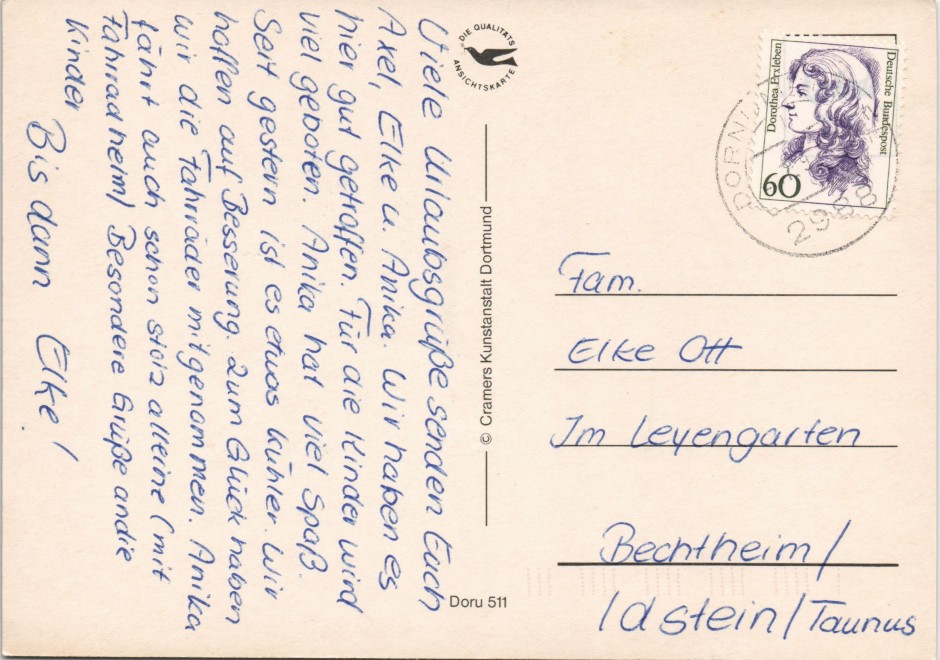 Viele Urlaubsgrüße senden Euch
Axel, Elke u. Anika. Wir haben es
hier gut getroffen. Für die Kinder wird
viel geboten. Anika hat viel Spaß.
Seit gestern ist es etwas kühler. Wir
hoffen auf Besserung. Zum Glück haben
wir die Fahrräder mitgenommen. Anika
fährt auch schon stolz alleine (mit
Fahrradhelm) Besondere Grüße an die
Kinder
Bis dann Elke!
DIE QUALITÄTS
ANSICHTSKARTE
© Cramers Kunstanstalt Dortmund
Doru 511
Deutsche Bundespost
Dorothea Erxleben
60
DORNUM
Fam.
Elke Ott
Im Leyengarten
Bechtheim/
Idstein/Taunus